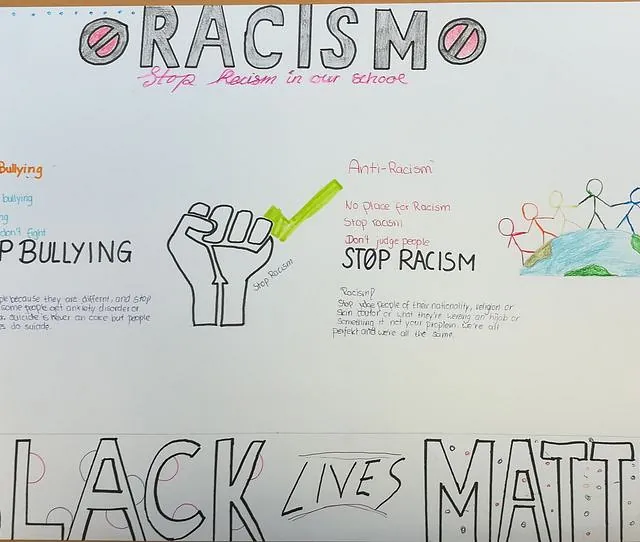 RACISM
Stop Racism in our school
Bullying
bullying
ng
don't fight
P BULLYING
ple because they are differnt, and stop
some people get anxiety disorder or
suicide is never an case but people
s do suicide.
Stop Racism
Anti-Racism
No place for Racism
Stop racism!
Don't judge people
STOP RACISM
Racism?
Stop judge people of their nationality, religion or
skin coulor or what they're wereing an hijab or
something it not your proplem. We're all
perfekt and we're all the same.
LACK LIVES MATT